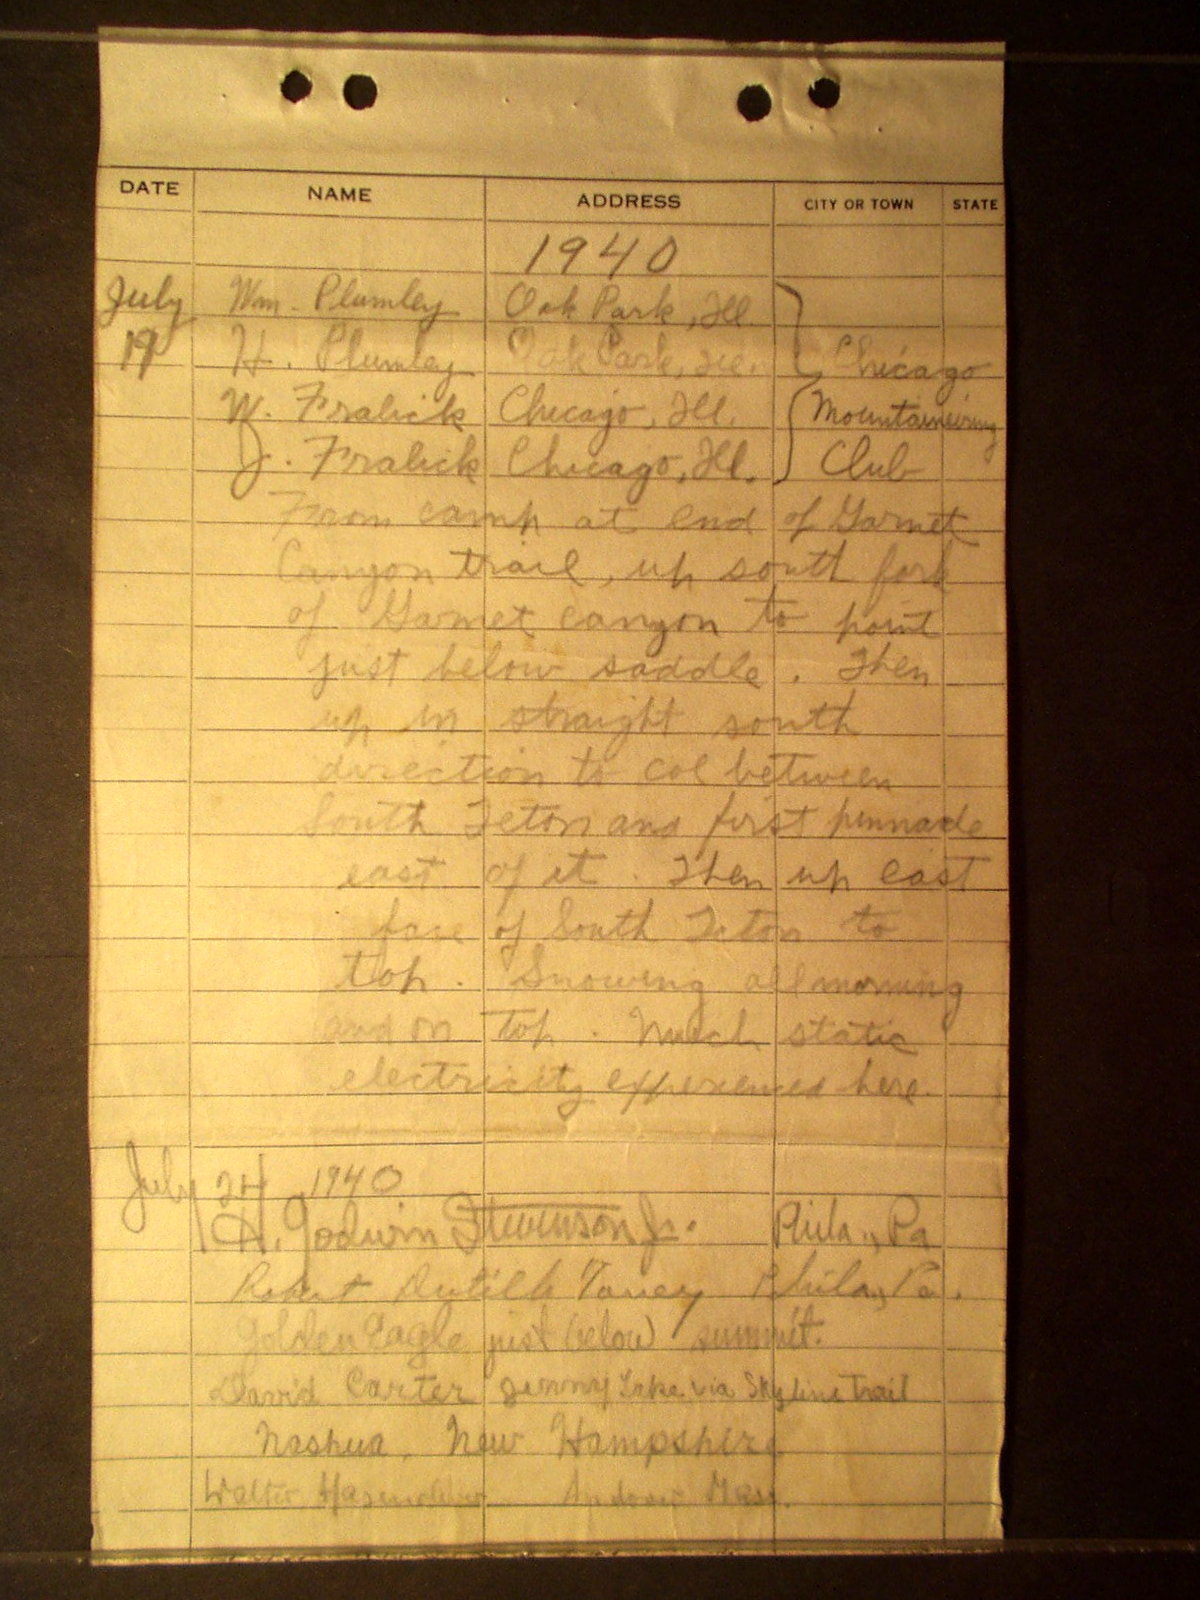 DATE NAME ADDRESS CITY OR TOWN STATE
1940
July Wm. Plumley Oak Park, Ill.
19 H. Plumley Oak Park, Ill. Chicago
W. Fralick Chicago, Ill. Mountaineering
J. Fralick Chicago, Ill. Club
From camp at end of Garnet
Canyon trail, up south fork
of Garnet canyon to point
just below saddle. Then
up in straight south
direction to col between
South Teton and first pinnacle
east of it. Then up east
face of South Teton to
top. Snowing all morning
and on top. Much static
electricity experienced here.
July 24 1940
H. Godwin Stevenson Jr. Phila., Pa
Robert Phila, Pa.
Golden Eagle just below summit.
David Carter Jenny Lake via Skyline Trail
Nashua, New Hampshire
Walter Andover Mass.